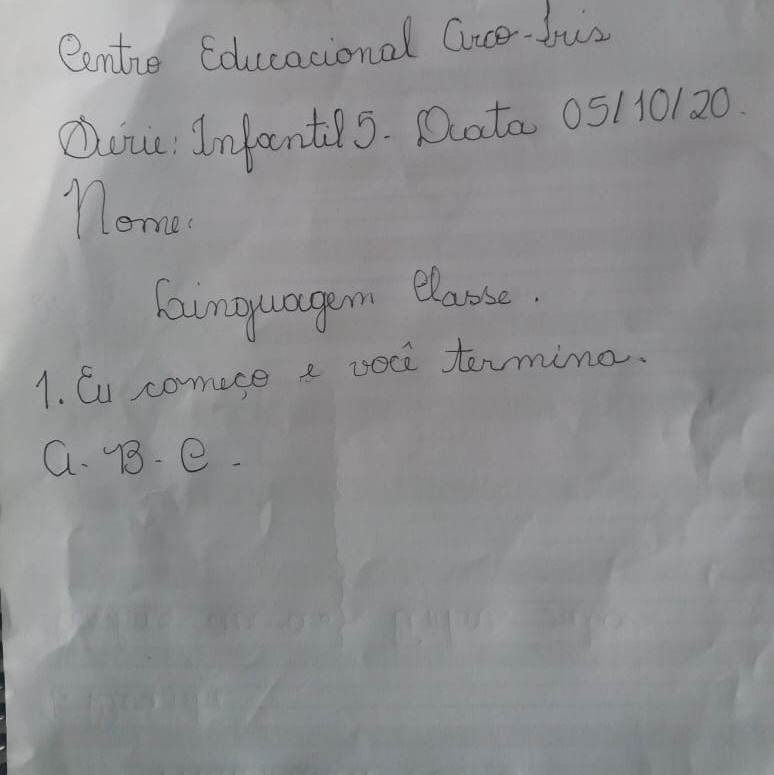 Centro Educacional Arco-Íris
Série: Infantil 5. Data 05/10/20.
Nome:
Linguagem Classe.
1. Eu começo e você termina.
A. B. C.